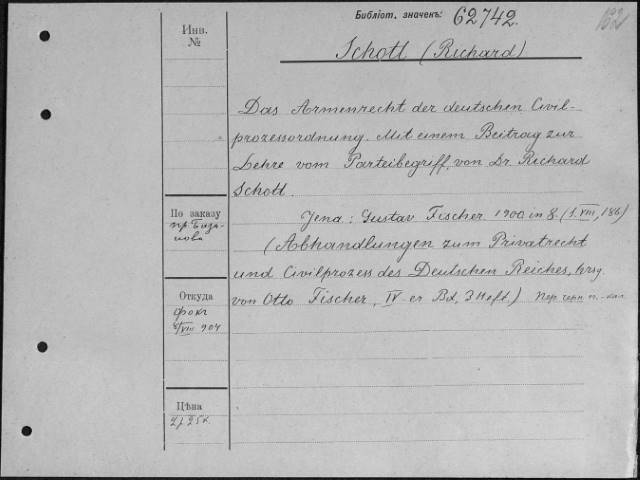 Библіот. значекъ: 62742.
162
Инв.
№
Schott (Richard)
Das Armenrecht der deutschen Civil-
prozessordnung. Mit einem Beitrag zur
Lehre vom Parteibegriff, von Dr. Richard
Schott.
По заказу
пр. База-
нова
Jena: Gustav Fischer 1900 in 8. (S. VIII, 186)
(Abhandlungen zum Privatrecht
und Civilprozess des Deutschen Reiches, hrsg.
von Otto Fischer, IV-er Bd, 3 Heft.)
Откуда
фокъ
VIII 904
Цѣна
2 р 25 к.